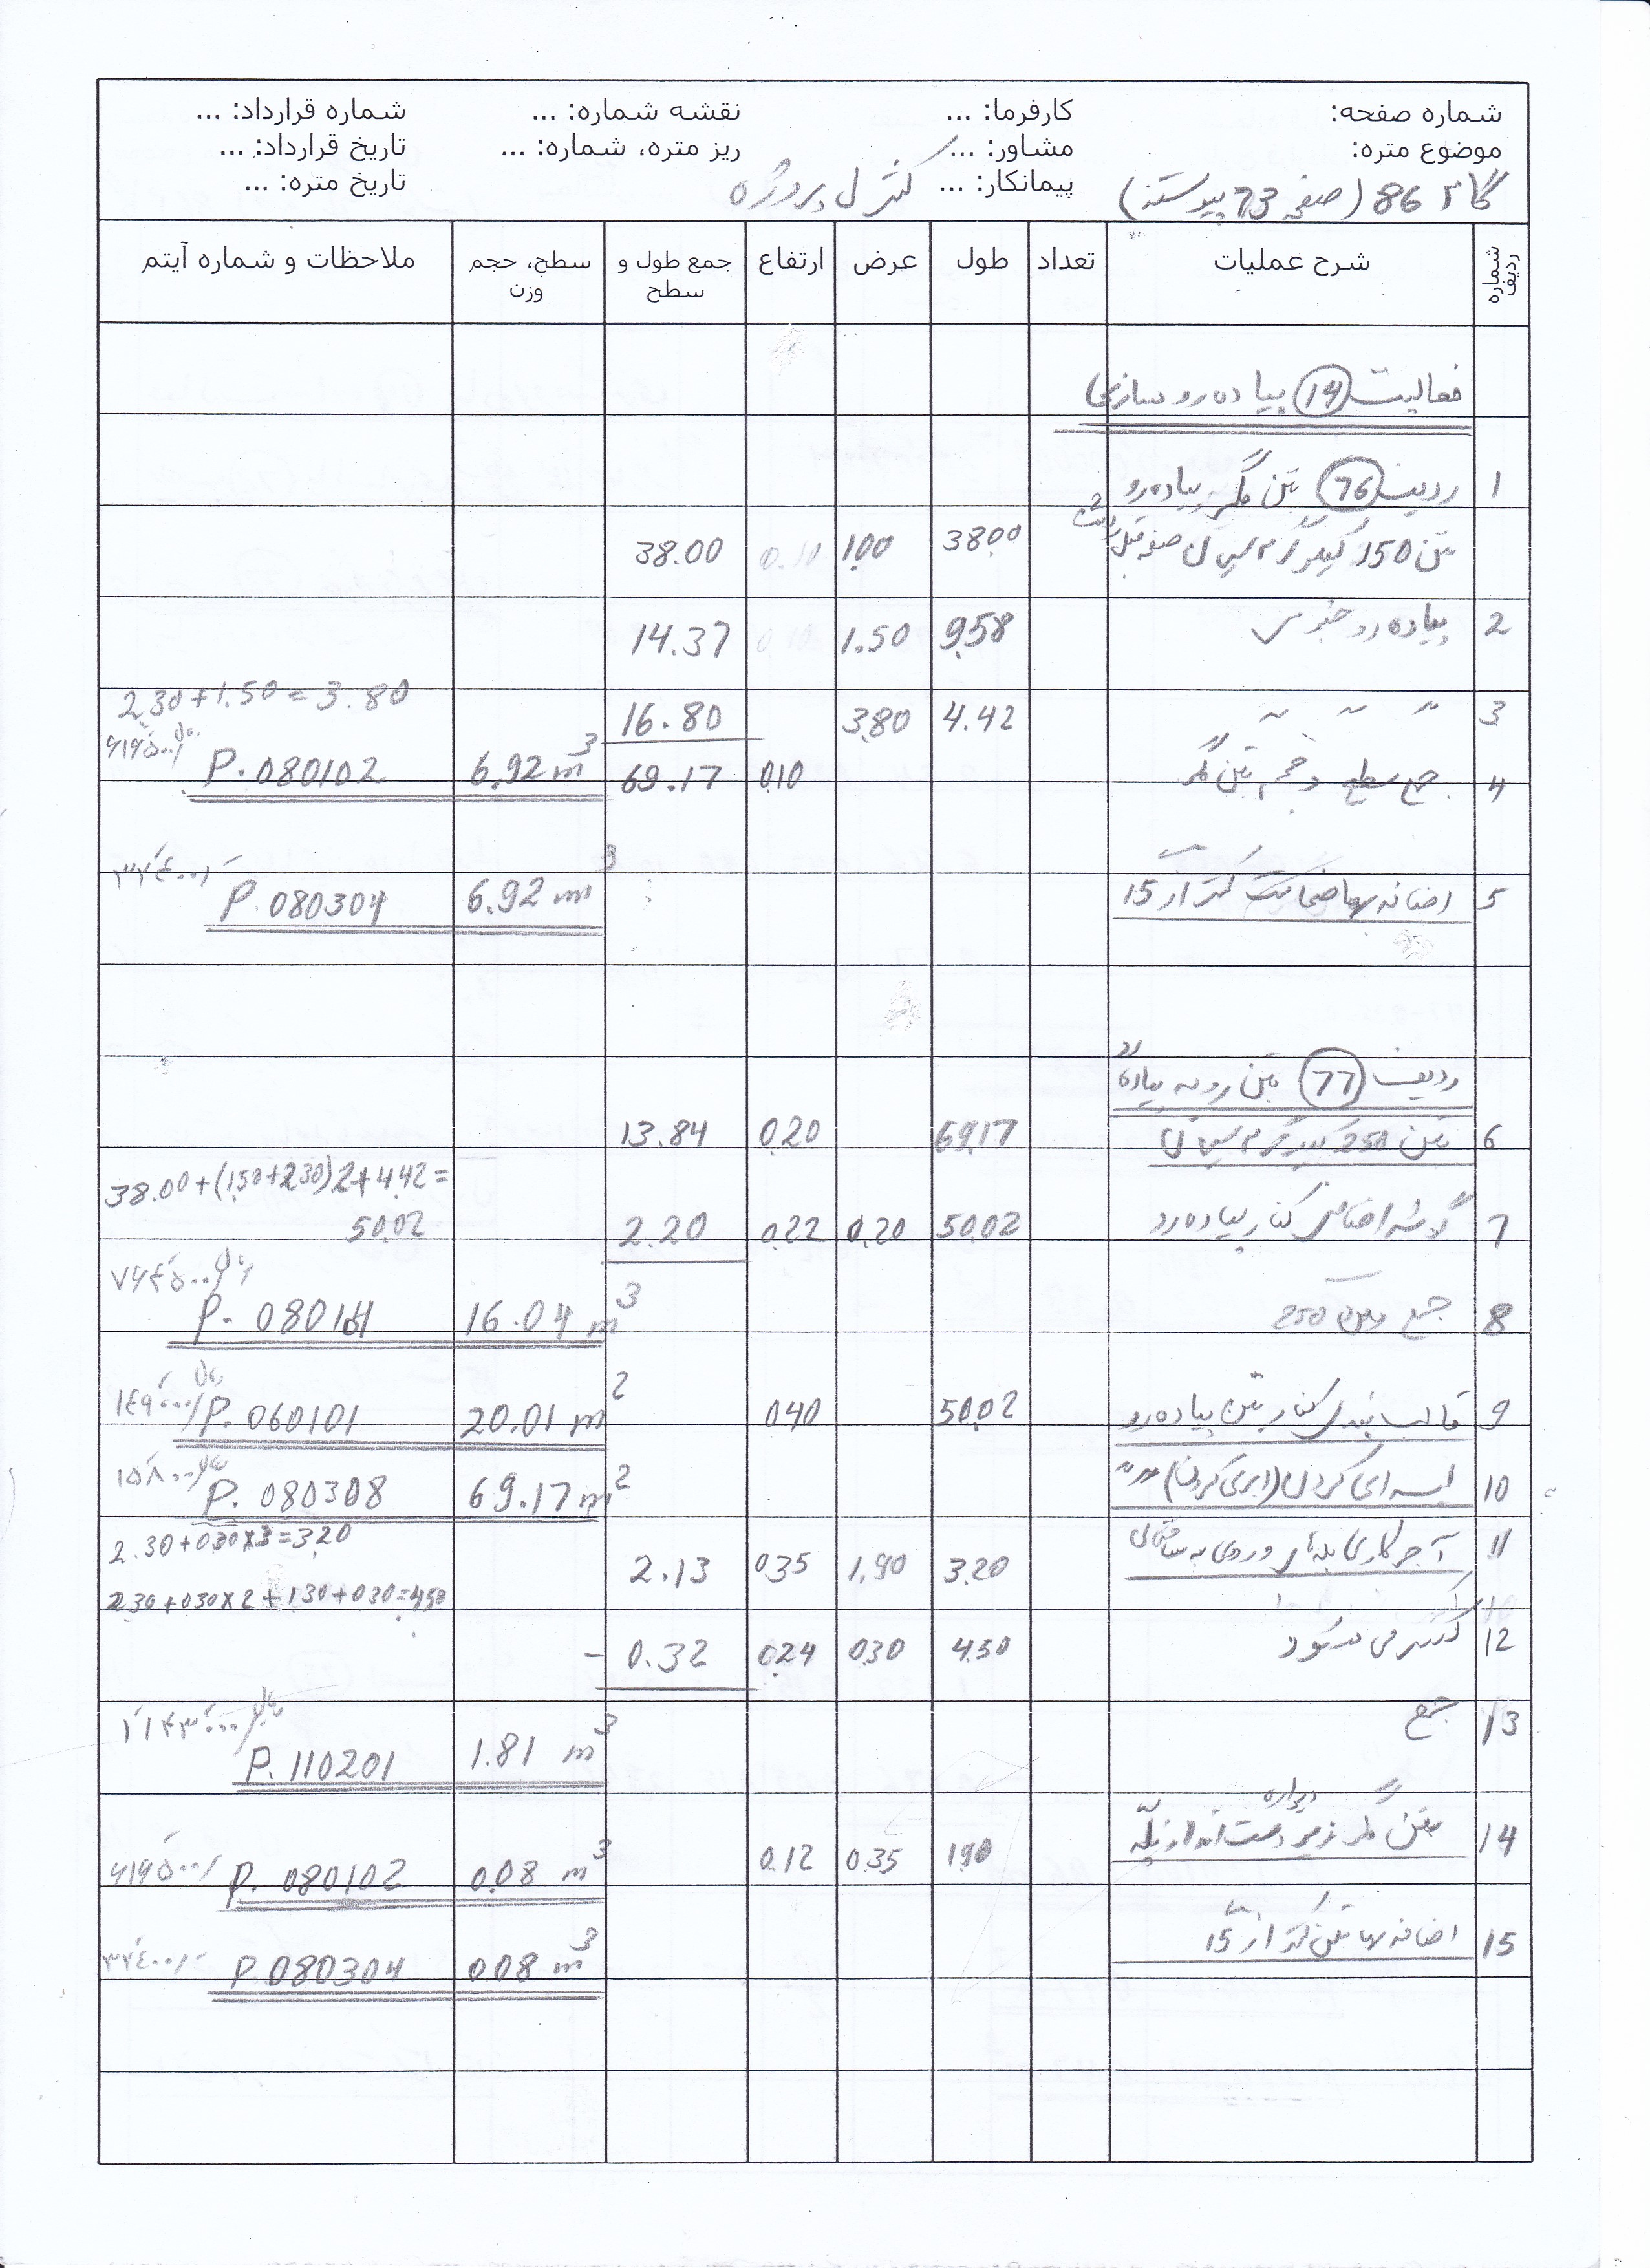 شماره صفحه: کارفرما: ... نقشه شماره: ... شماره قرارداد: ...
موضوع متره: مشاور: ... ریز متره، شماره: ... تاریخ قرارداد: ...
پیمانکار: ... تاریخ متره: ...
گام 86 (صفحه 73 پیوسته) کنترل پروژه
شماره ردیف شرح عملیات تعداد طول عرض ارتفاع جمع طول و سطح سطح، حجم وزن ملاحظات و شماره آیتم
فعالیت (14) پیاده رو سازی
1 ردیف (76) بتن مگر پیاده رو
بتن 150 کیلوگرم سیمان صفحه قبل 38.00 1.00 0.10 38.00
2 پیاده رو جنوبی 9.58 1.50 0.10 14.37
3 " " " 4.42 3.80 16.80 2.30+1.50=3.80
4 جمع سطح و حجم بتن مگر 0.10 69.17 6.92 m3 P.080102 ۶۱۹۵۰۰/ریال
5 اضافه بها ضخامت کمتر از 15 6.92 m3 P.080304 ۳۳۴۰۰/
ردیف (77) بتن رویه پیاده رو
6 بتن 250 کیلوگرم سیمان 69.17 0.20 13.84
38.00+(1.50+2.30)2+4.42=
7 گوشه اضافی کنار پیاده رو 50.02 0.20 0.22 2.20 50.02
8 جمع بتن 250 16.04 m3 P.080104 ۷۶۴۵۰۰/ریال
9 قالب بندی کنار بتن پیاده رو 50.02 0.40 20.01 m2 P.060101 ۱۴۹۰۰۰/ریال
10 لیسه ای کردن (ابری کردن) " " 69.17 m2 P.080308 ۱۵۸۰۰/ریال
11 آجرکاری پله های ورودی به ساختمان 3.20 1.90 0.35 2.13 2.30+0.30×3=3.20
2.30+0.30×2+1.30+0.30=4.50
12 کسر می شود 4.50 0.30 0.24 0.32 -
13 جمع 1.81 m3 P.110201 ۱۱۴۳۰۰۰/ریال
14 بتن مگر زیر دیواره دست انداز پله 1.90 0.35 0.12 0.08 m3 P.080102 ۶۱۹۵۰۰/
15 اضافه بها بتن کمتر از 15 0.08 m3 P.080304 ۳۳۴۰۰/